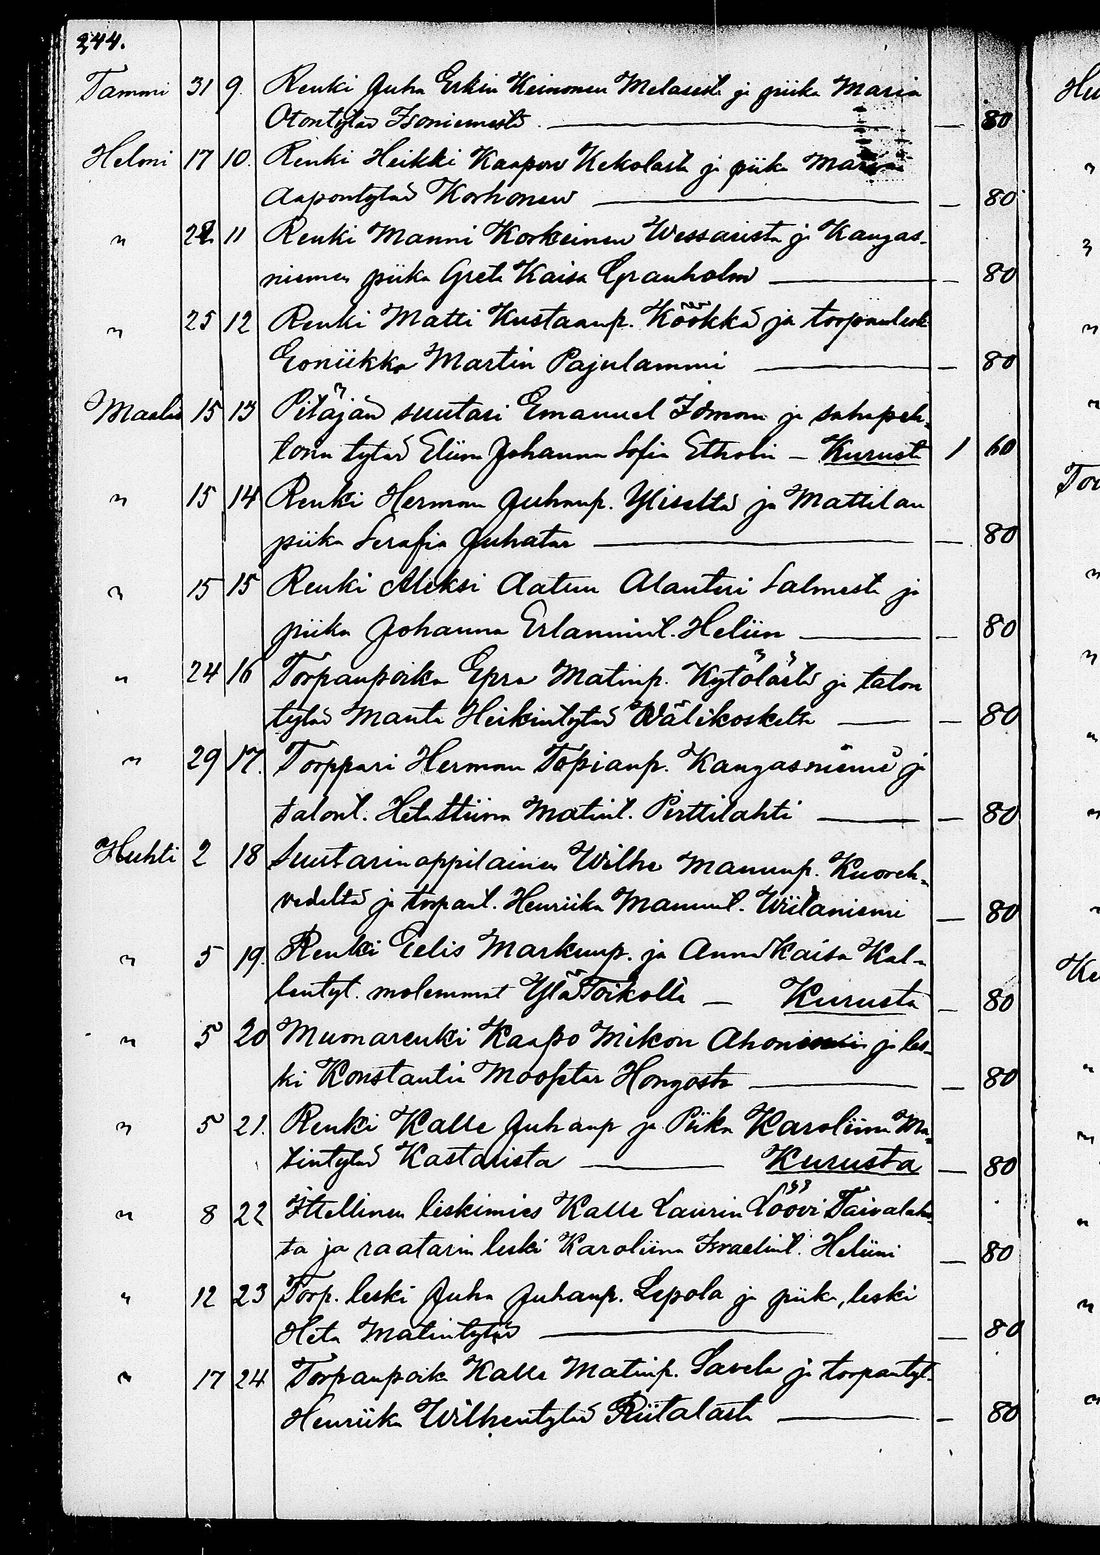 244.
Tammi 31 9. Renki Juha Erkin Keinonen Melasest ja piika Maria
Otontytär Isoniemestä — 80
Helmi 17 10. Renki Heikki Kaapon Kekolast ja piika Maria
Aapontytär Korhonen — 80
" 22 11 Renki Manni Korkeinen Wessarista ja Kangas-
niemen piika Greta Kaisa Granholm — 80
" 25 12 Renki Matti Kustaanp.Köökkä ja torpanlesk
Eoniikka Martin Pajulammi — 80
Maalis 15 13 Pitäjän suutari Emanuel Idman ja sahapeh-
torin tytär Eliina Johanna Sofia Etholin — Kurust 1 60
" 15 14 Renki Herman Juhanp. Yliseltä ja Mattilan
piika Serafia Juhatar — 80
" 15 15 Renki Aleksi Aatun Alanteri Salmest ja
piika Johanna Erlannint. Heliin — 80
" 24 16 Torpanpoika Epra Matinp. Kytölästä ja talon
tytär Manta Heikintytär Wälikoskelta — 80
" 29 17. Torppari Herman Topianp. Kangasniemi ja
talont. Heta Stiina Matint. Pirttilahti — 80
Huhti 2 18 Suutarinoppilainen Wilhe Manunp. Kuoreh-
vedeltä ja torpant. Henriika Manunt. Wiitaniemi — 80
" 5 19. Renki Eelis Markunp. ja Anna Kaisa Kal-
lentyt. molemmat YläToikolta — Kurusta — 80
" 5 20 Muonarenki Kaapo Mikon Ahoniemi ja les-
ki Konstantia Mooptar Hongosta — 80
" 5 21. Renki Kalle Juhanp ja Piika Karoliina Ma-
tintytär Kastarista — Kurusta — 80
" 8 22 Itsellinen leskimies Kalle Laurin Löövi Taivalah-
ta ja raatarin leski Karoliina Israelint. Heliini — 80
" 12 23 Torp. leski Juha Juhanp. Lepola ja piika, leski
Heta Matintytär — 80
" 17 24 Torpanpoik Kalle Matinp. Savela ja torpantyt.
Henriika Wilhentytär Riitalast — 80